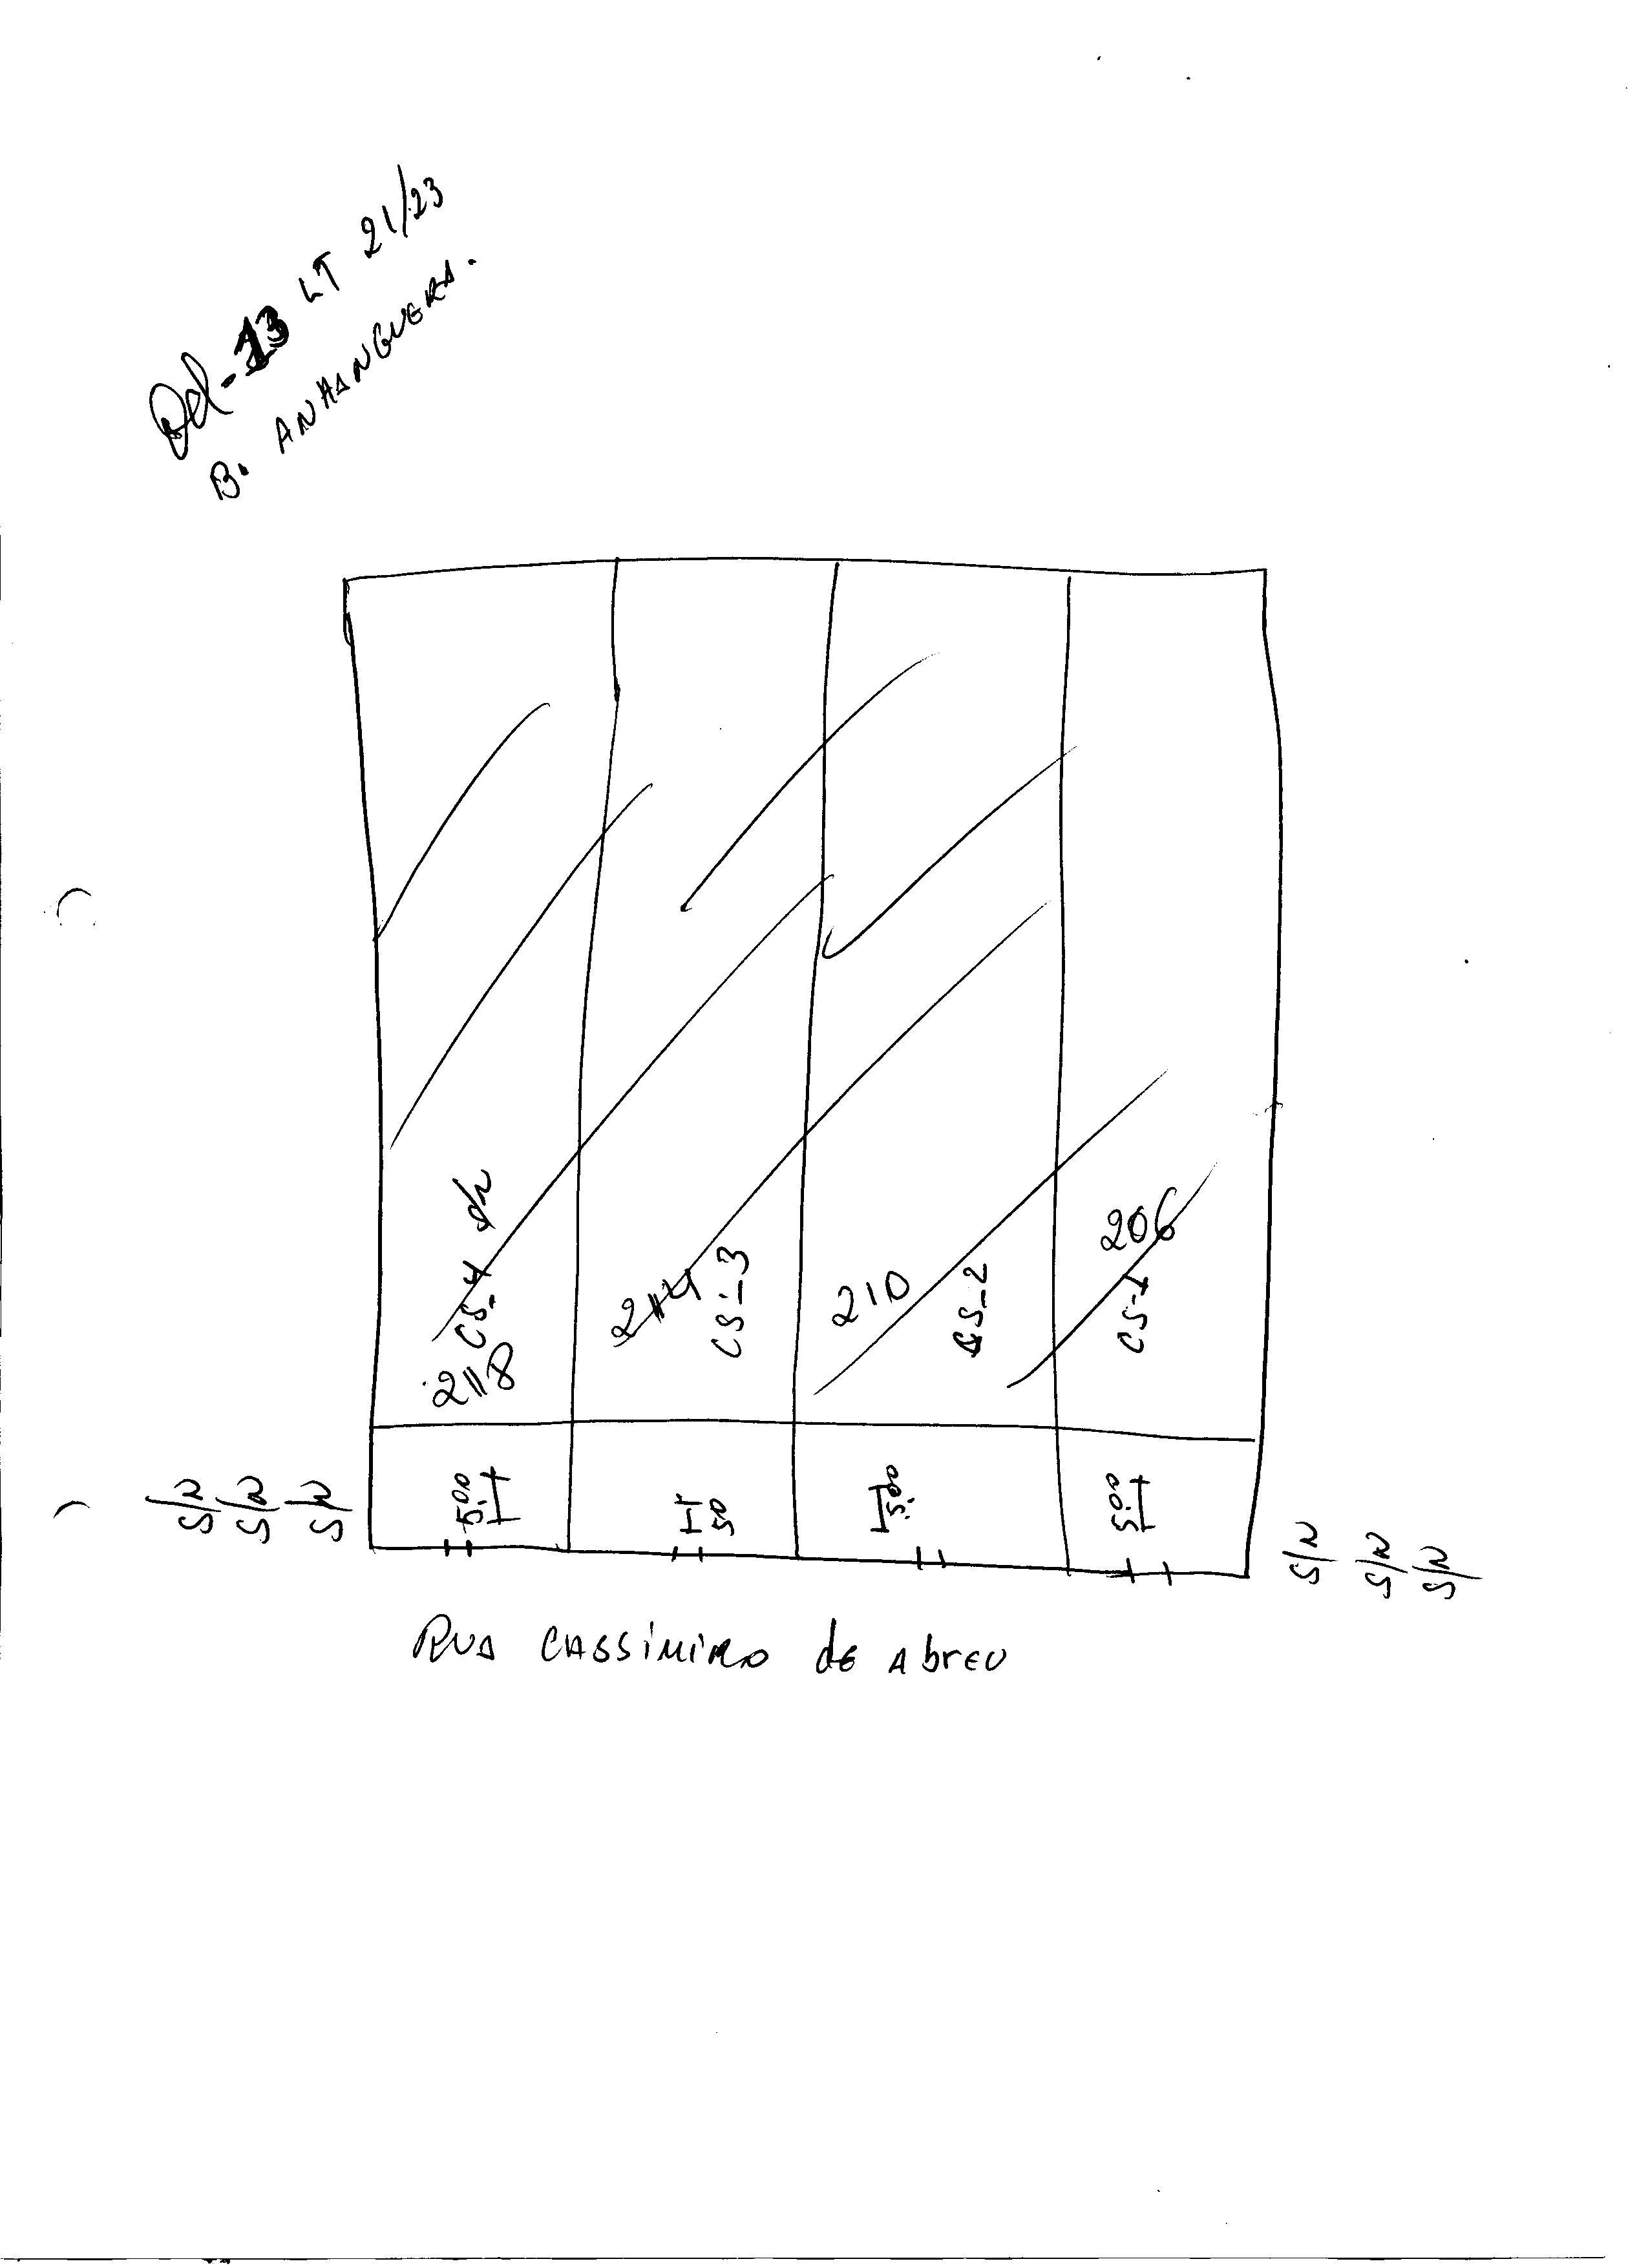 Qd-13 LT 21/23
B. ANHANGUERA.
206
210
214
218
CS-4
CS-3
CS-2
CS-1
5.00
50
5.00
5.00
S/N
S/N
S/N
S/N
S/N
S/N
RUA CASSIMIRO de Abreu